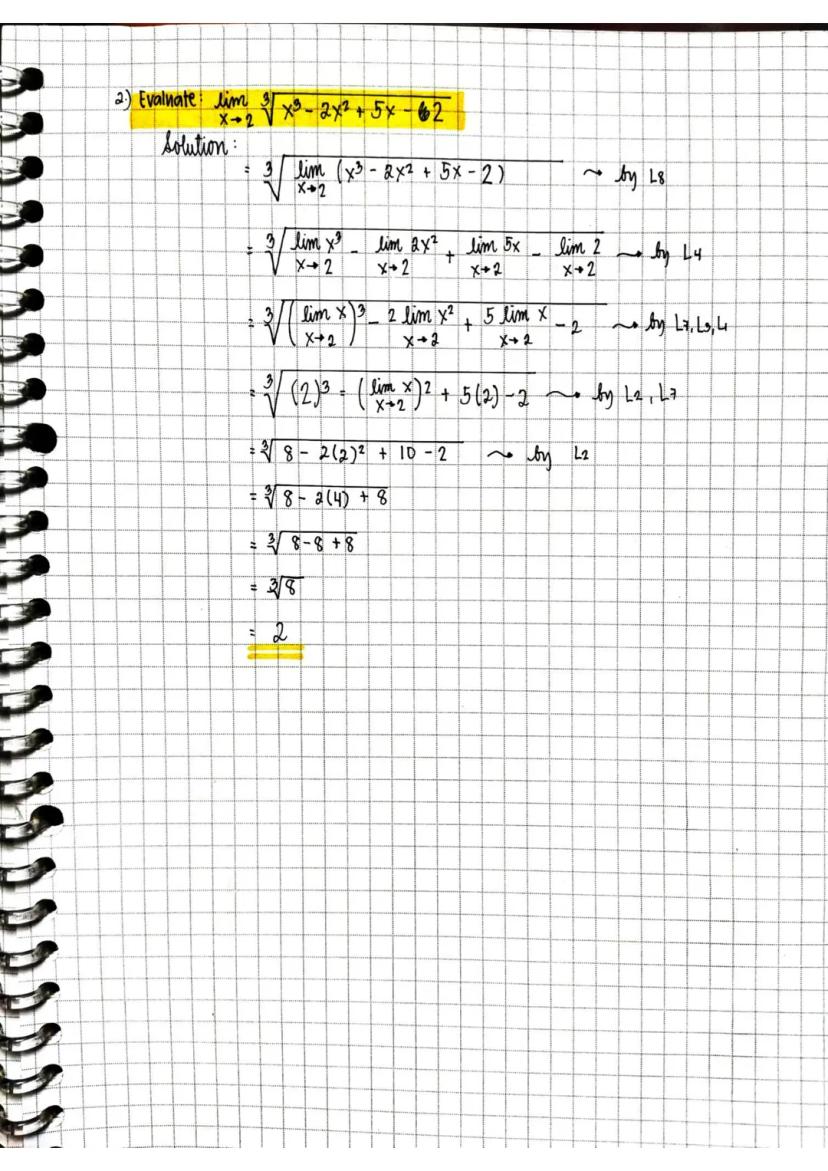 2.) Evaluate: lim x→2 ∛(x³ - 2x² + 5x - 2)
Solution:
= ∛(lim x→2 (x³ - 2x² + 5x - 2)) → by L8
= ∛(lim x→2 x³ - lim x→2 2x² + lim x→2 5x - lim x→2 2) → by L4
= ∛((lim x→2 x)³ - 2 lim x→2 x² + 5 lim x→2 x - 2) → by L7, L3, L1
= ∛((2)³ - (lim x→2 x)² + 5(2) - 2) → by L2, L7
= ∛(8 - 2(2)² + 10 - 2) → by L2
= ∛(8 - 2(4) + 8)
= ∛(8 - 8 + 8)
= ∛8
= 2